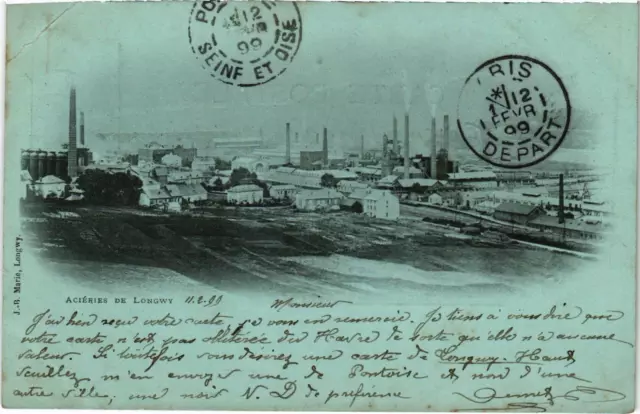 PO
12
99
SEINE ET OISE
RIS
12
FEVR
99
DEPART
J.-B. Marie, Longwy.
ACIÉRIES DE LONGWY 11.2.99 Monsieur
J'ai bien reçu votre carte, je vous en remercie. Je tiens à vous dire que
votre carte n'est pas oblitérée du Havre de sorte qu'elle n'a aucune
valeur. Si toutefois vous désirez une carte de Longwy-Haut
veuillez m'en envoyer une de Pontoise et non d'une
autre ville, une noir N. D de préférence